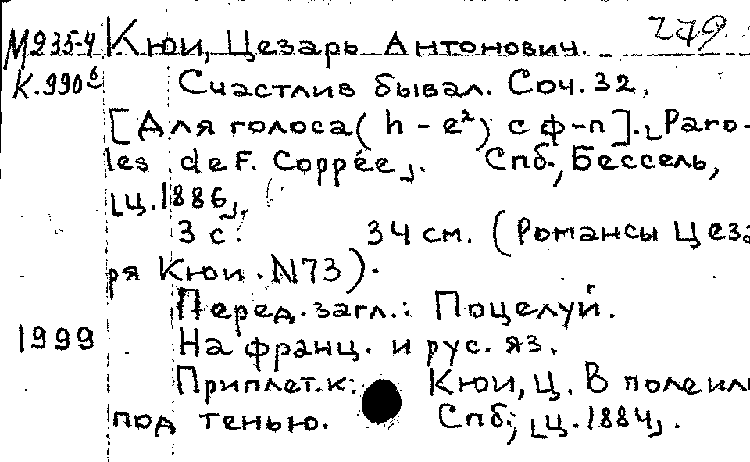 М935-4 Кюи, Цезарь Антонович. 279
К.990⁶ Счастлив бывал. Соч. 32.
[Для голоса (h – e²) с ф-п]. ⌊Paro-
les de F. Coppée⌋. Спб., Бессель,
⌊ц. 1886⌋.
3 с. 34 см. (Романсы Цеза
ря Кюи. N73).
Перед. загл.: Поцелуй.
1999 На франц. и рус. яз.
Приплет. к: Кюи, Ц. В поле ил
под тенью. Спб., ⌊ц. 1884⌋.